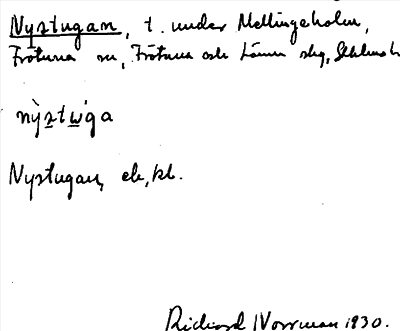 Nystugan, t. under Mellingeholm,
Frötuna sn, Frötuna och Länna skg, Sthlms l.
nỳstẁga
Nystugan, ek, kb.
Richard Norrman 1930.